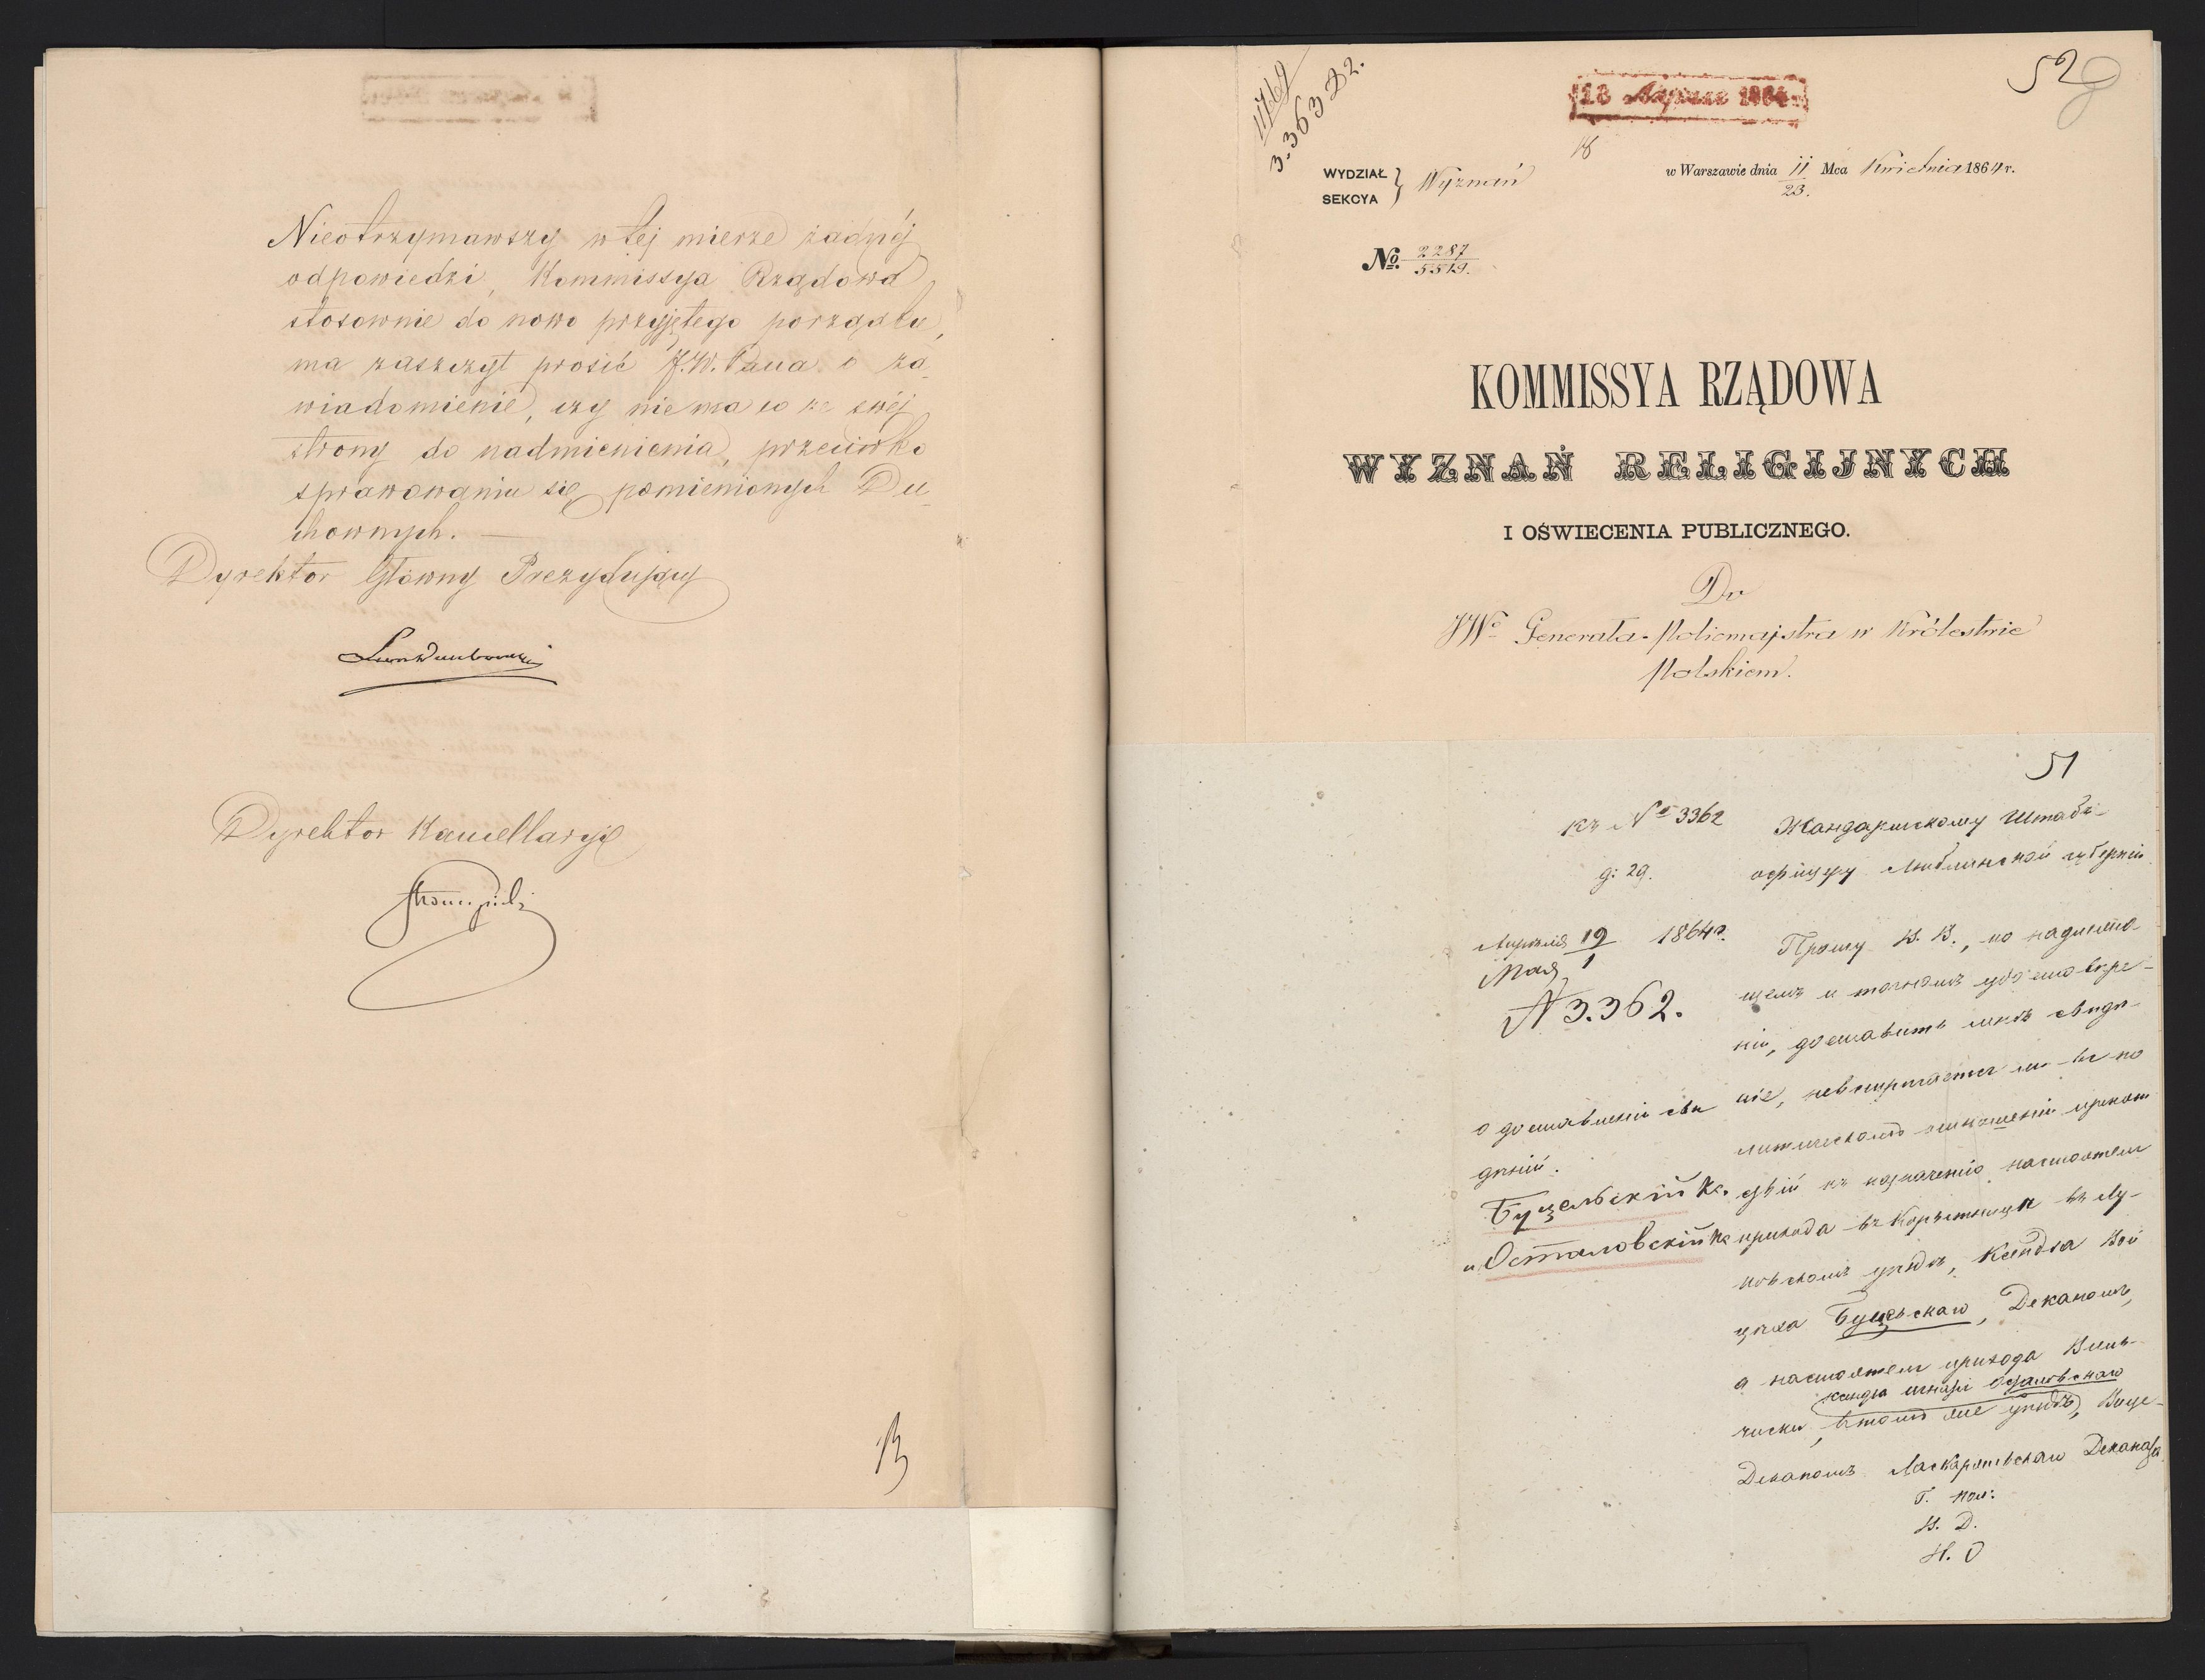 Nieotrzymawszy w tej mierze żadnéj
odpowiedzi, Kommissya Rządowa
stosownie do nowo przyjętego porządku,
ma zaszczyt prosić J.W. Pana o za-
wiadomienie, czy niema co ze swéj
strony do nadmienienia, przeciwko
sprawowaniu się pomienionych Du-
chownych. —
Dyrektor Główny Prezydujący
Dyrektor Kancellaryi
52
3.363
18 Апреля 1864
WYDZIAŁ
SEKCYA } Wyznań
w Warszawie dnia 11/23. Mca Kwietnia 1864 r.
No. 2287/5519.
KOMMISSYA RZĄDOWA
WYZNAŃ RELIGIJNYCH
I OŚWIECENIA PUBLICZNEGO.
Do
JWo Generała-Policmajstra w Królestwie
Polskiem.
51
Къ No 3362
д: 29.
Апрѣля 19 1864 г.
Мая 1
N 3.362.
о доставленіи свѣ
дѣній.
Буцельскій Кс.
и Осталовскій Кс
Жандармскому Штабъ-
офицеру Люблинской губерніи
Прошу В. В., по надлежа-
щемъ и точномъ удостовѣре-
ніи, доставить мнѣ свѣдѣ-
ніе, невстрѣчается ли въ по
литическомъ отношеніи препят
ствій къ назначенію настоятеля
прихода въ Корытница въ Лу-
ковскомъ уѣздѣ, Ксендза Вой
цѣха Буцельскаго, Деканомъ,
а настоятеля прихода Виль-
ксендза
чиски, въ томъ же уѣздѣ, Вице-
Деканомъ Ласкаржевскаго Деканата
Г. Пол:
В. Д.
Н. О